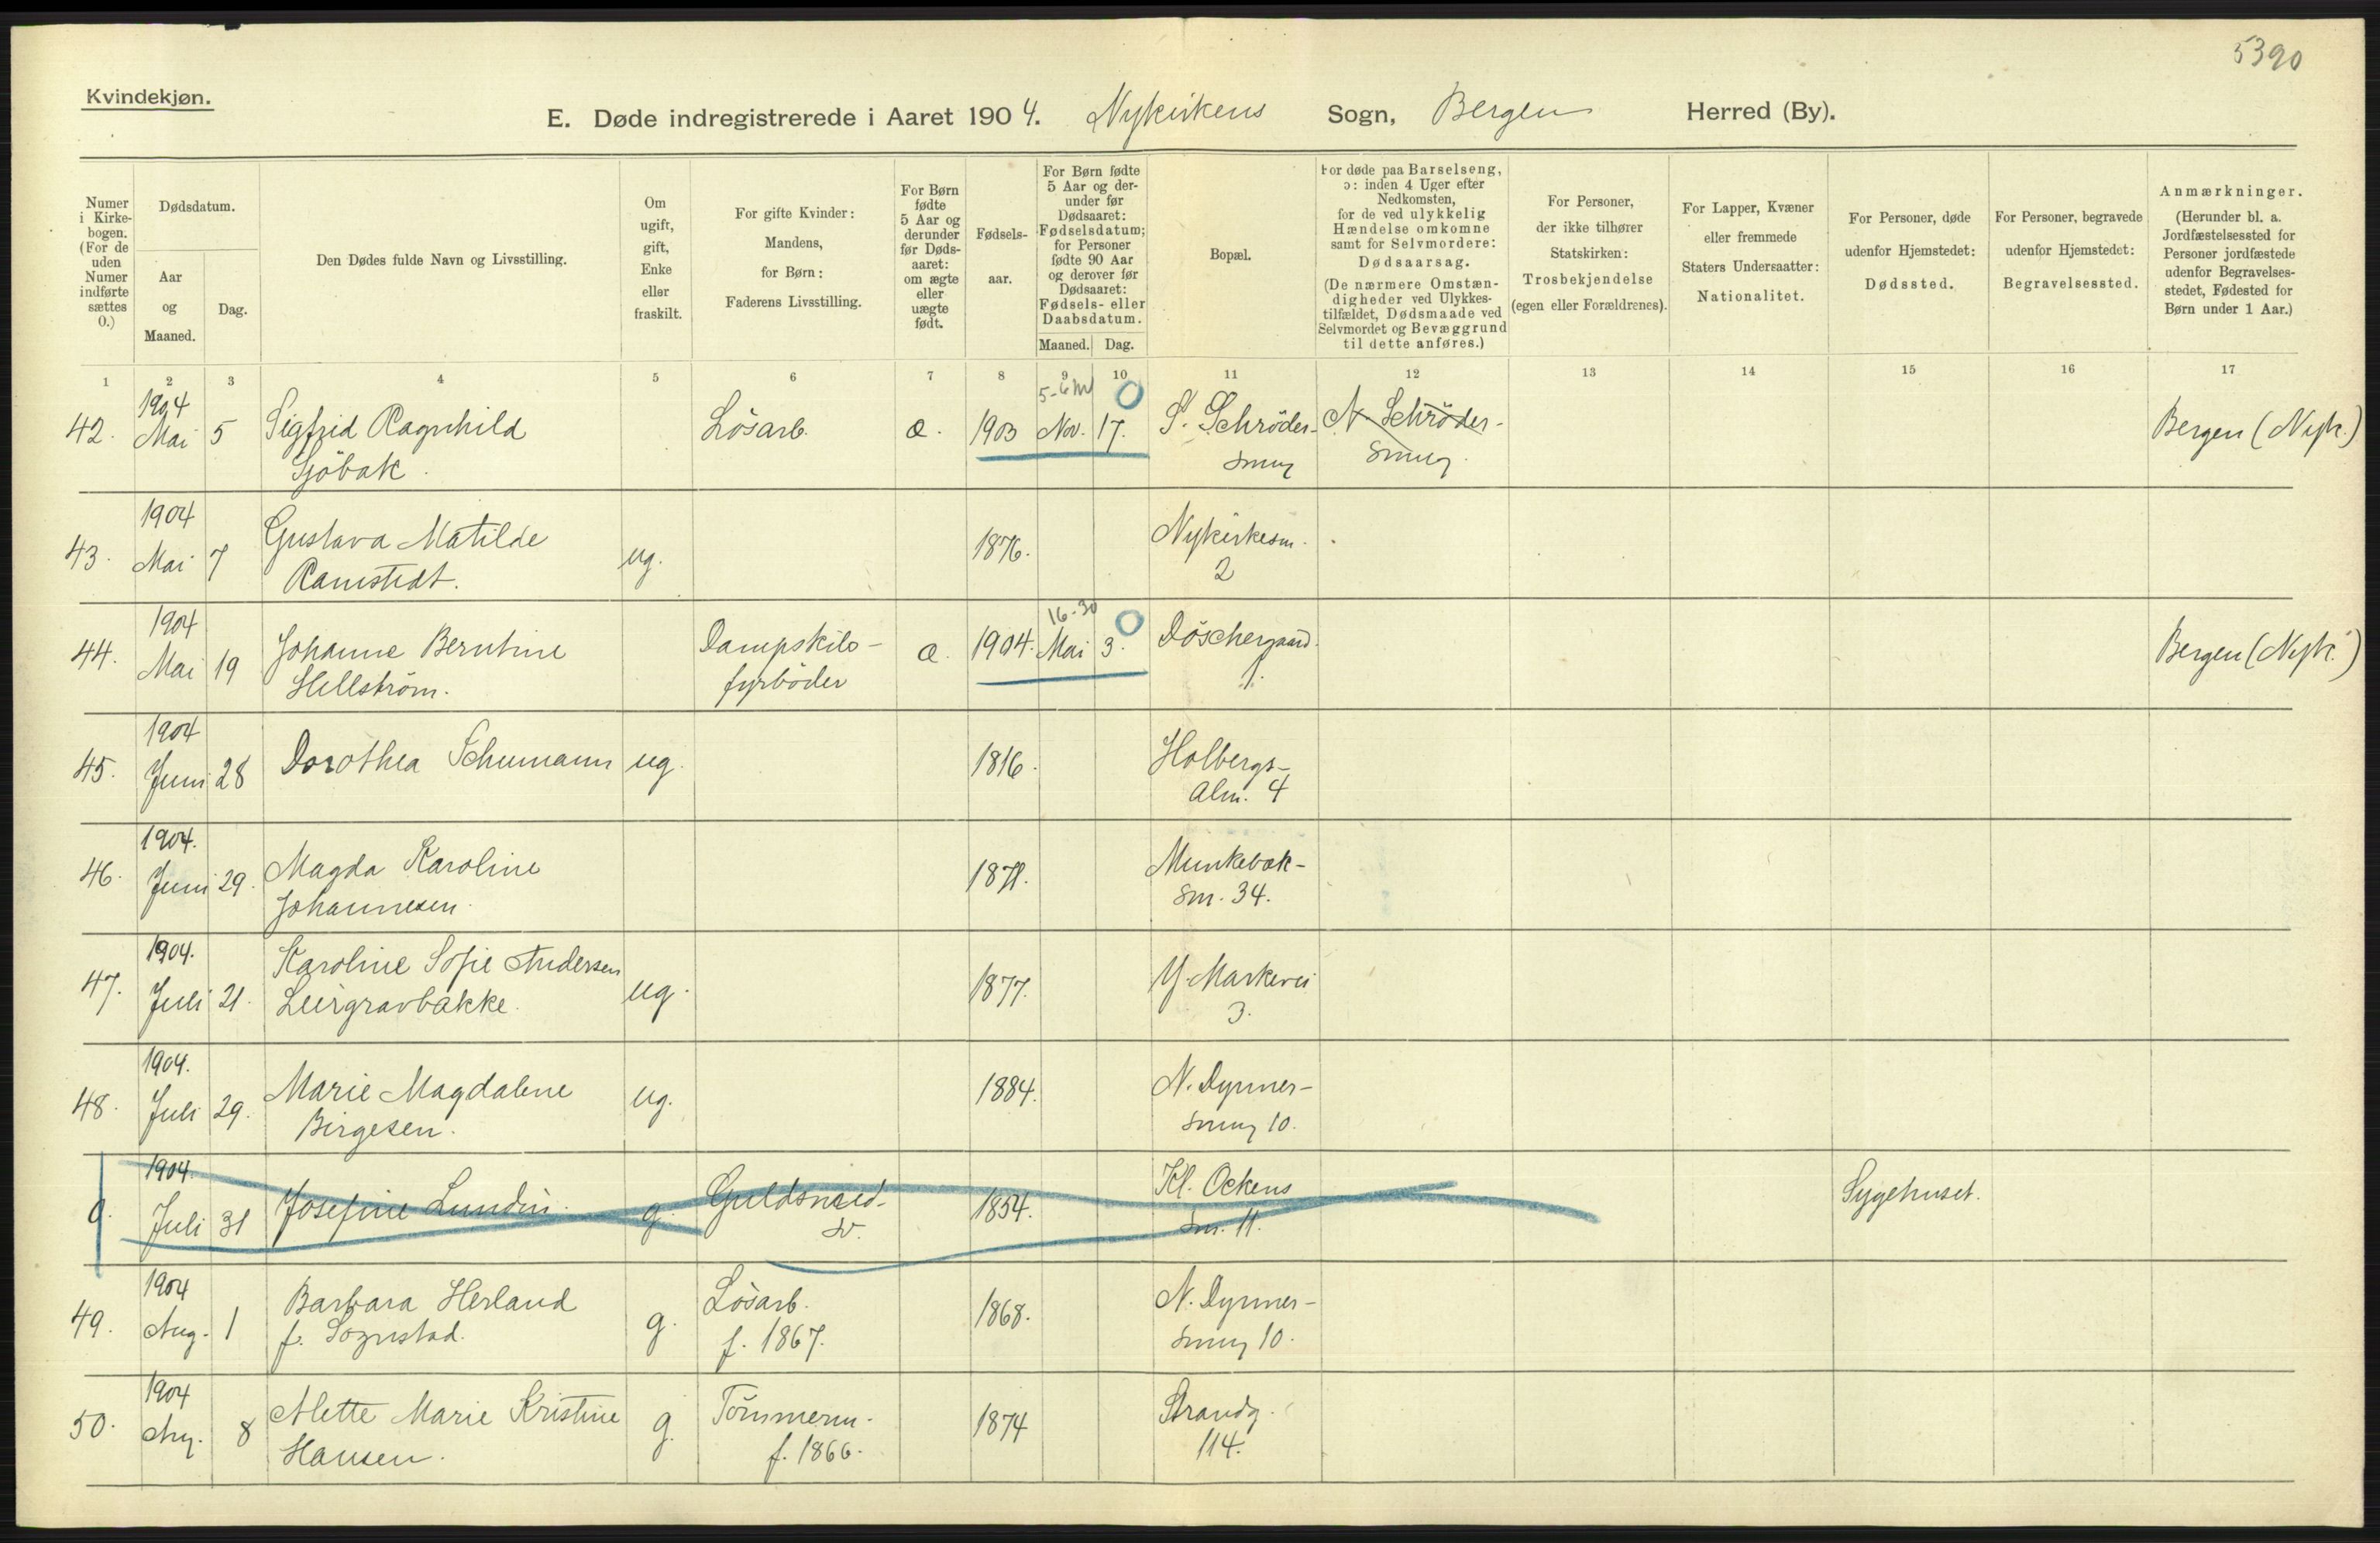 5390
Kvindekjøn.
E. Døde indregistrerede i Aaret 1904. Nykirkens Sogn, Bergen Herred (By).
Numer
i Kirke-
bogen.
(For de
uden
Numer
indførte
sættes
0.)
Dødsdatum.
Aar
og
Maaned.
Dag.
Den Dødes fulde Navn og Livsstilling.
Om
ugift,
gift,
Enke
eller
fraskilt.
For gifte Kvinder:
Mandens,
for Børn:
Faderens Livsstilling.
For Børn
fødte
5 Aar og
derunder
før Døds-
aaret:
om ægte
eller
uægte
født.
Fødsels-
aar.
For Børn fødte
5 Aar og der-
under før
Dødsaaret:
Fødselsdatum;
for Personer
fødte 90 Aar
og derover før
Dødsaaret:
Fødsels- eller
Daabsdatum.
Maaned. Dag.
Bopæl.
For døde paa Barselseng,
ɔ: inden 4 Uger efter
Nedkomsten,
for de ved ulykkelig
Hændelse omkomne
samt for Selvmordere:
Dødsaarsag.
(De nærmere Omstæn-
digheder ved Ulykkes-
tilfældet, Dødsmaade ved
Selvmordet og Bevæggrund
til dette anføres.)
For Personer,
der ikke tilhører
Statskirken:
Trosbekjendelse
(egen eller Forældrenes).
For Lapper, Kvæner
eller fremmede
Staters Undersaatter:
Nationalitet.
For Personer, døde
udenfor Hjemstedet:
Dødssted.
For Personer, begravede
udenfor Hjemstedet:
Begravelsessted.
Anmærkninger.
(Herunder bl. a.
Jordfæstelsessted for
Personer jordfæstede
udenfor Begravelses-
stedet, Fødested for
Børn under 1 Aar.)
1 2 3 4 5 6 7 8 9 10 11 12 13 14 15 16 17
1904 5-6 M 0
42. Mai 5 Sigfrid Ragnhild Løsarb. æ. 1903 Nov. 17. S. Schrøder- N. Schrøder- Bergen (Nyk.)
Gjøbak. smug smug.
1904
43. Mai 7 Gustava Matilde ug. 1876. Nykirkesm.
Ramstedt. 2
1904 16-30 0
44. Mai 19 Johanne Berntine Dampskibs- æ. 1904. Mai 3. Døschergaard. Bergen (Nyk.)
Hellstrøm. fyrbøder 1.
1904
45. Juni 28 Dorothea Schumann ug. 1816. Holbergs-
Alm. 4
1904.
46. Juni 29. Magda Karoline Munkebæk-
Johannesen. Sm. 34.
1904.
47. Juli 21. Karoline Sofie Andersen ug. 1877. Y. Markevei
Leirgravbakke. 3.
1904.
48. Juli 29. Marie Magdalene ug. 1884. N. Dynner-
Birgesen. smug 10.
1904.
0. Juli 31 Josefine Lundin. g. Guldsmed- 1854. Kl. Ockens Sygehuset.
sv. sm. 11.
1904
49. Aug. 1 Barbara Herland g. Løsarb. 1868. N. Dynner-
f. Sognstad. f. 1867. smug 10.
1904
50. Aug. 8 Alette Marie Kristine g. Tømmerm. 1874 Strandg.
Hansen. f. 1866. 114.